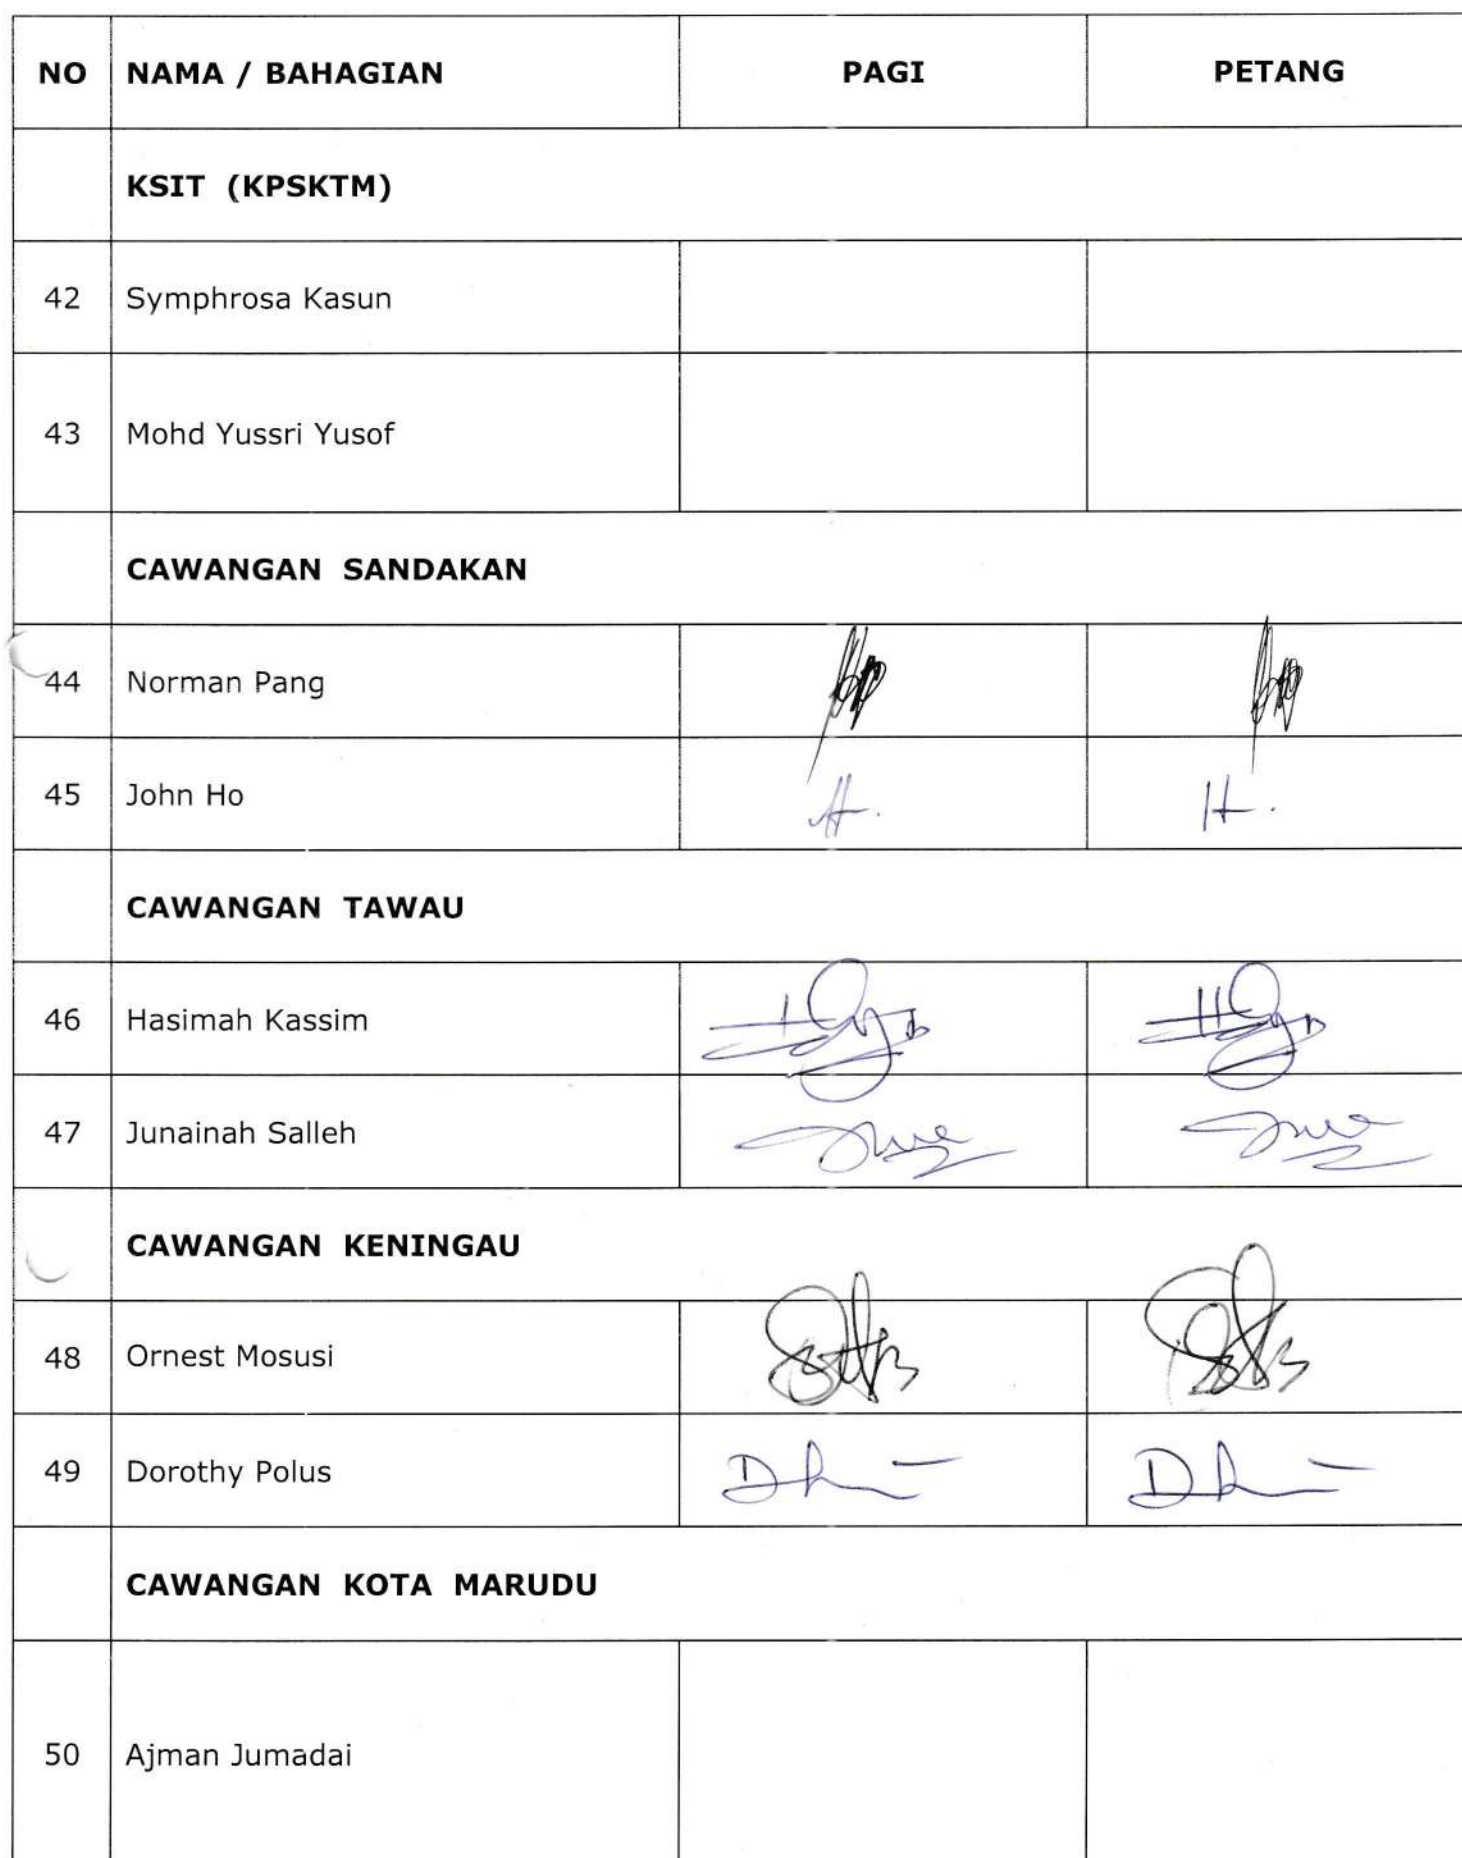 NO NAMA / BAHAGIAN PAGI PETANG
KSIT (KPSKTM)
42 Symphrosa Kasun
43 Mohd Yussri Yusof
CAWANGAN SANDAKAN
44 Norman Pang
45 John Ho
CAWANGAN TAWAU
46 Hasimah Kassim
47 Junainah Salleh
CAWANGAN KENINGAU
48 Ornest Mosusi
49 Dorothy Polus
CAWANGAN KOTA MARUDU
50 Ajman Jumadai